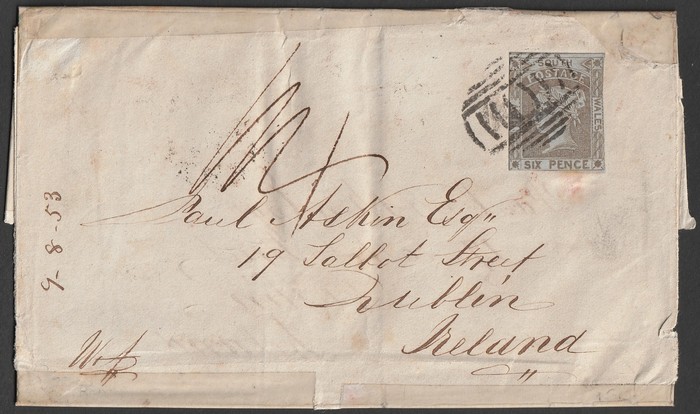 SOUTH
POSTAGE
WALES
SIX PENCE
Paul Askin Esq"
19 Sallot Street
Dublin
Ireland
9-8-53